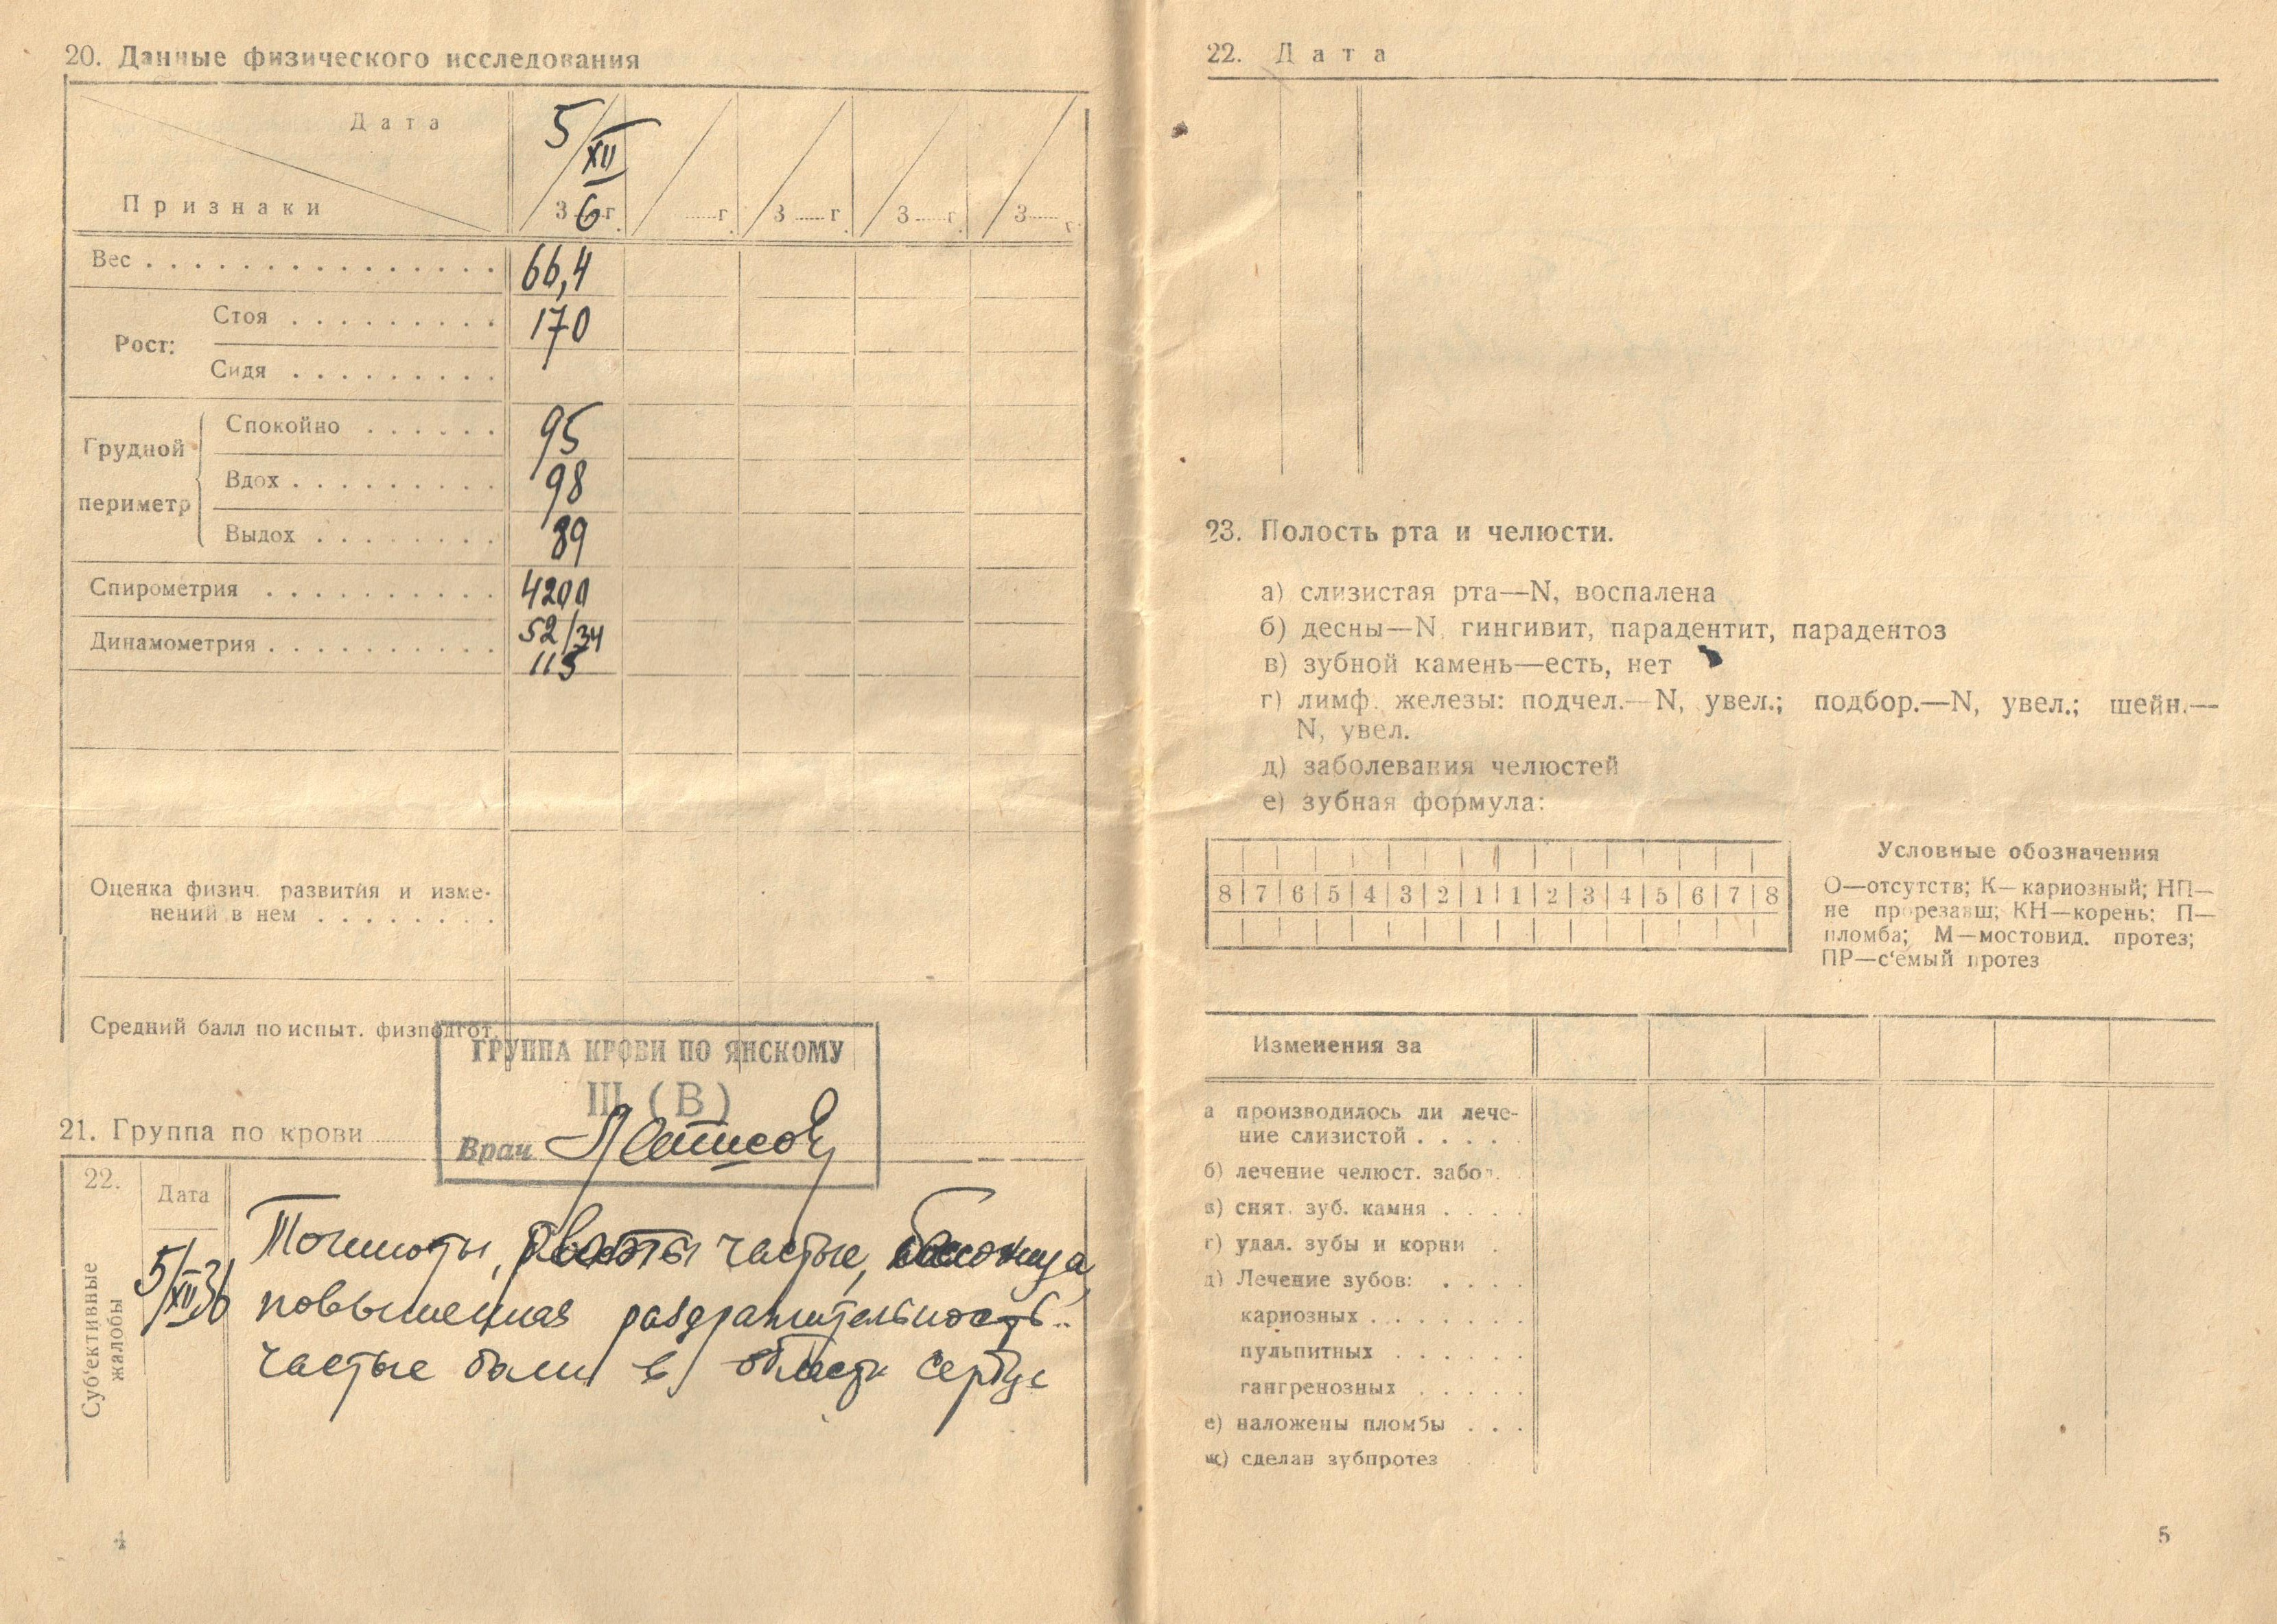 20. Данные физического исследования
Дата
Признаки
5/XII
36 г.
г.
3 г.
3 г.
3 г.
Вес 66,4
Рост:
Стоя 170
Сидя
Грудной периметр
Спокойно 95
Вдох 98
Выдох 89
Спирометрия 4200
Динамометрия 52/34
115
Оценка физич. развития и изме-
нений в нем
Средний балл по испыт. физподгот.
ГРУППА КРОВИ ПО ЯНСКОМУ
III (В)
Врач
21. Группа по крови
22.
Дата
Суб'ективные
жалобы
5/XII 36
Тошноты, рвоты частые, бессоница,
повышенная раздражительность..
частые боли в области сердца
4
22. Дата
23. Полость рта и челюсти.
а) слизистая рта—N, воспалена
б) десны—N, гингивит, парадентит, парадентоз
в) зубной камень—есть, нет
г) лимф. железы: подчел.—N, увел.; подбор.—N, увел.; шейн.—
N, увел.
д) заболевания челюстей
е) зубная формула:
8 7 6 5 4 3 2 1 1 2 3 4 5 6 7 8
Условные обозначения
О—отсутств; К—кариозный; НП—
не прорезавш; КН—корень; П—
пломба; М—мостовид. протез;
ПР—с'емый протез
Изменения за
а производилось ли лече-
ние слизистой . . . .
б) лечение челюст. забол.
в) снят. зуб. камня . . . .
г) удал. зубы и корни .
д) Лечение зубов: . . . .
кариозных . . . . . . .
пульпитных . . . . . .
гангренозных . . . . .
е) наложены пломбы . . .
ж) сделан зубпротез
5